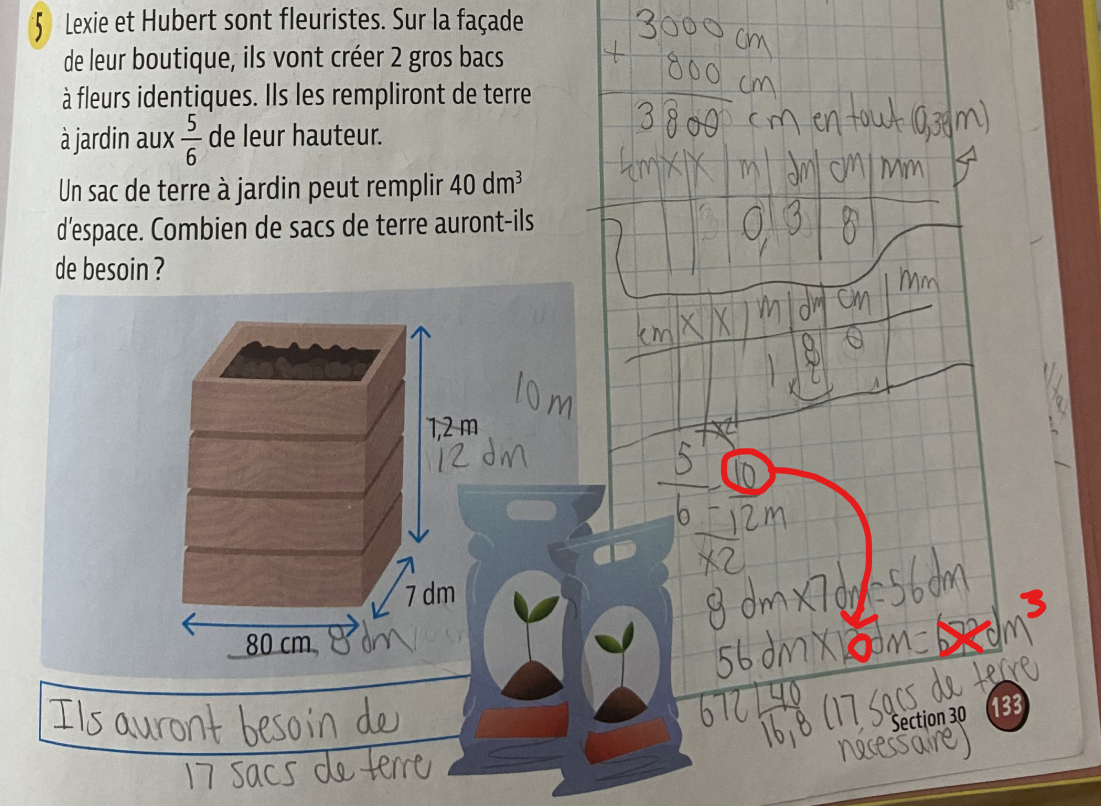 5 Lexie et Hubert sont fleuristes. Sur la façade
de leur boutique, ils vont créer 2 gros bacs
à fleurs identiques. Ils les rempliront de terre
à jardin aux 5/6 de leur hauteur.
Un sac de terre à jardin peut remplir 40 dm³
d'espace. Combien de sacs de terre auront-ils
de besoin ?
10 m
1,2 m
12 dm
7 dm
80 cm, 8 dm
Ils auront besoin de
17 sacs de terre
3000 cm
+ 800 cm
3800 cm en tout (0,38m)
km X X m dm cm mm
0, 3 8
km X X m dm cm mm
1
x2
5/6 = 10/12 m
x2
8 dm x 7 dm = 56 dm
56 dm x 0 dm = 672 dm 3
672 40
16,8 (17 sacs de terre
nécessaire)
Section 30 133